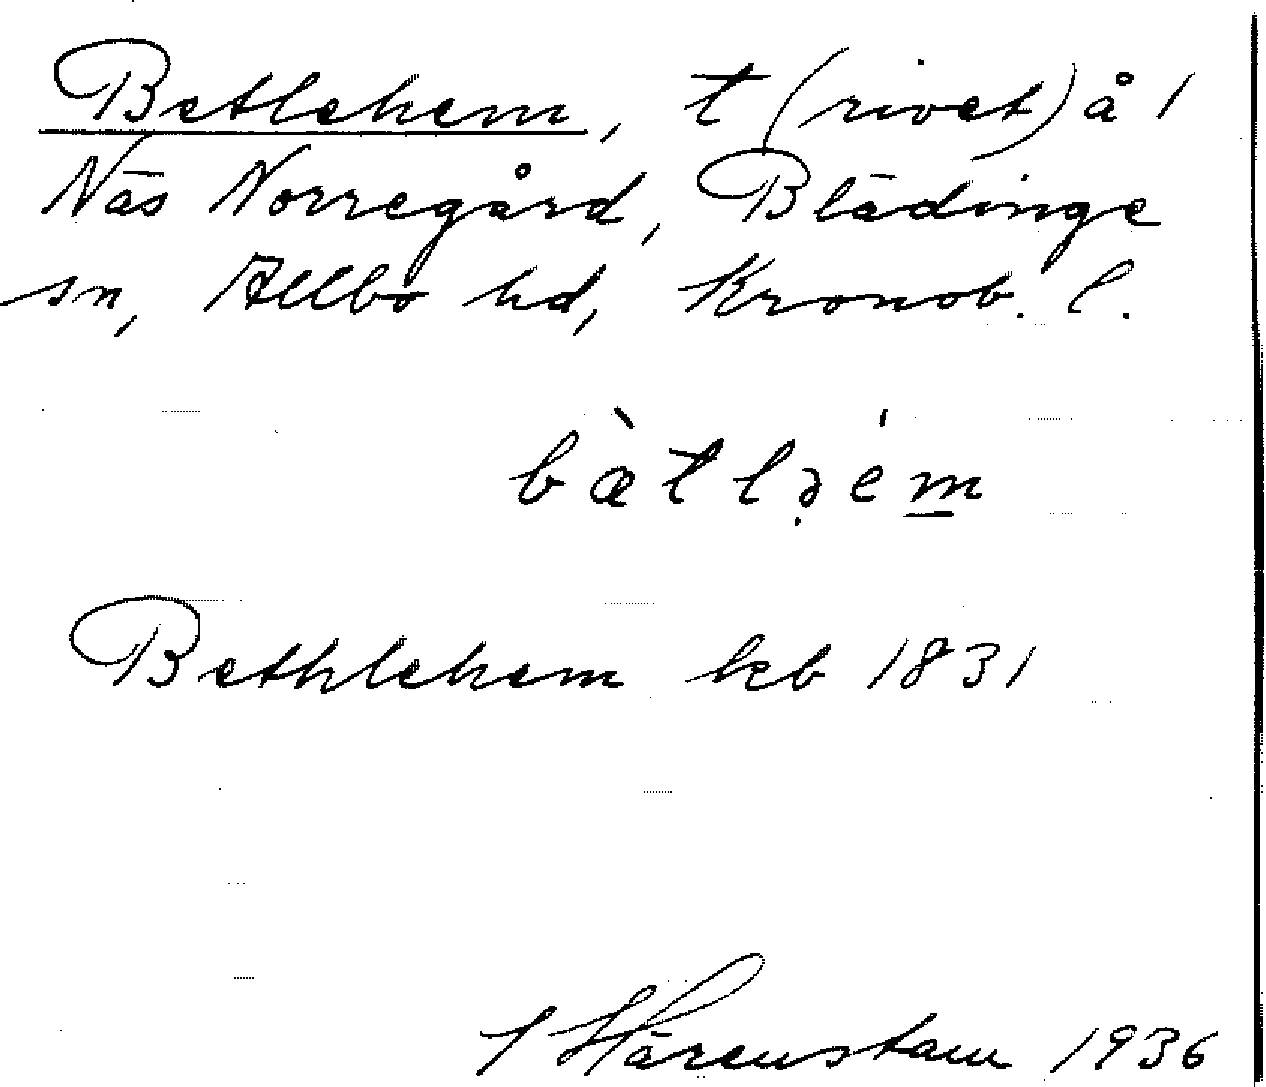 Betlehem, t (rivet) å 1
Näs Norregård, Blädinge
sn, Allbo hd, Kronob. l.
bæ̀tlə̣ém
Bethlehem kb 1831
Härenstam 1936